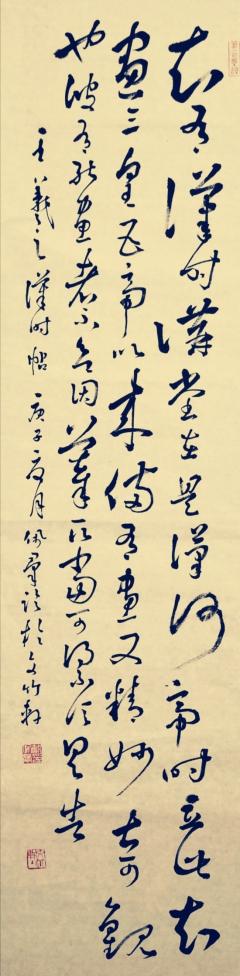 知有漢時講堂在是漢何帝時立此知
畫三皇五帝以來備有畫又精妙甚可觀
也彼有能畫者不欲因摹取當可得不信具告
王羲之漢時帖 庚子夏月佩群於文竹軒